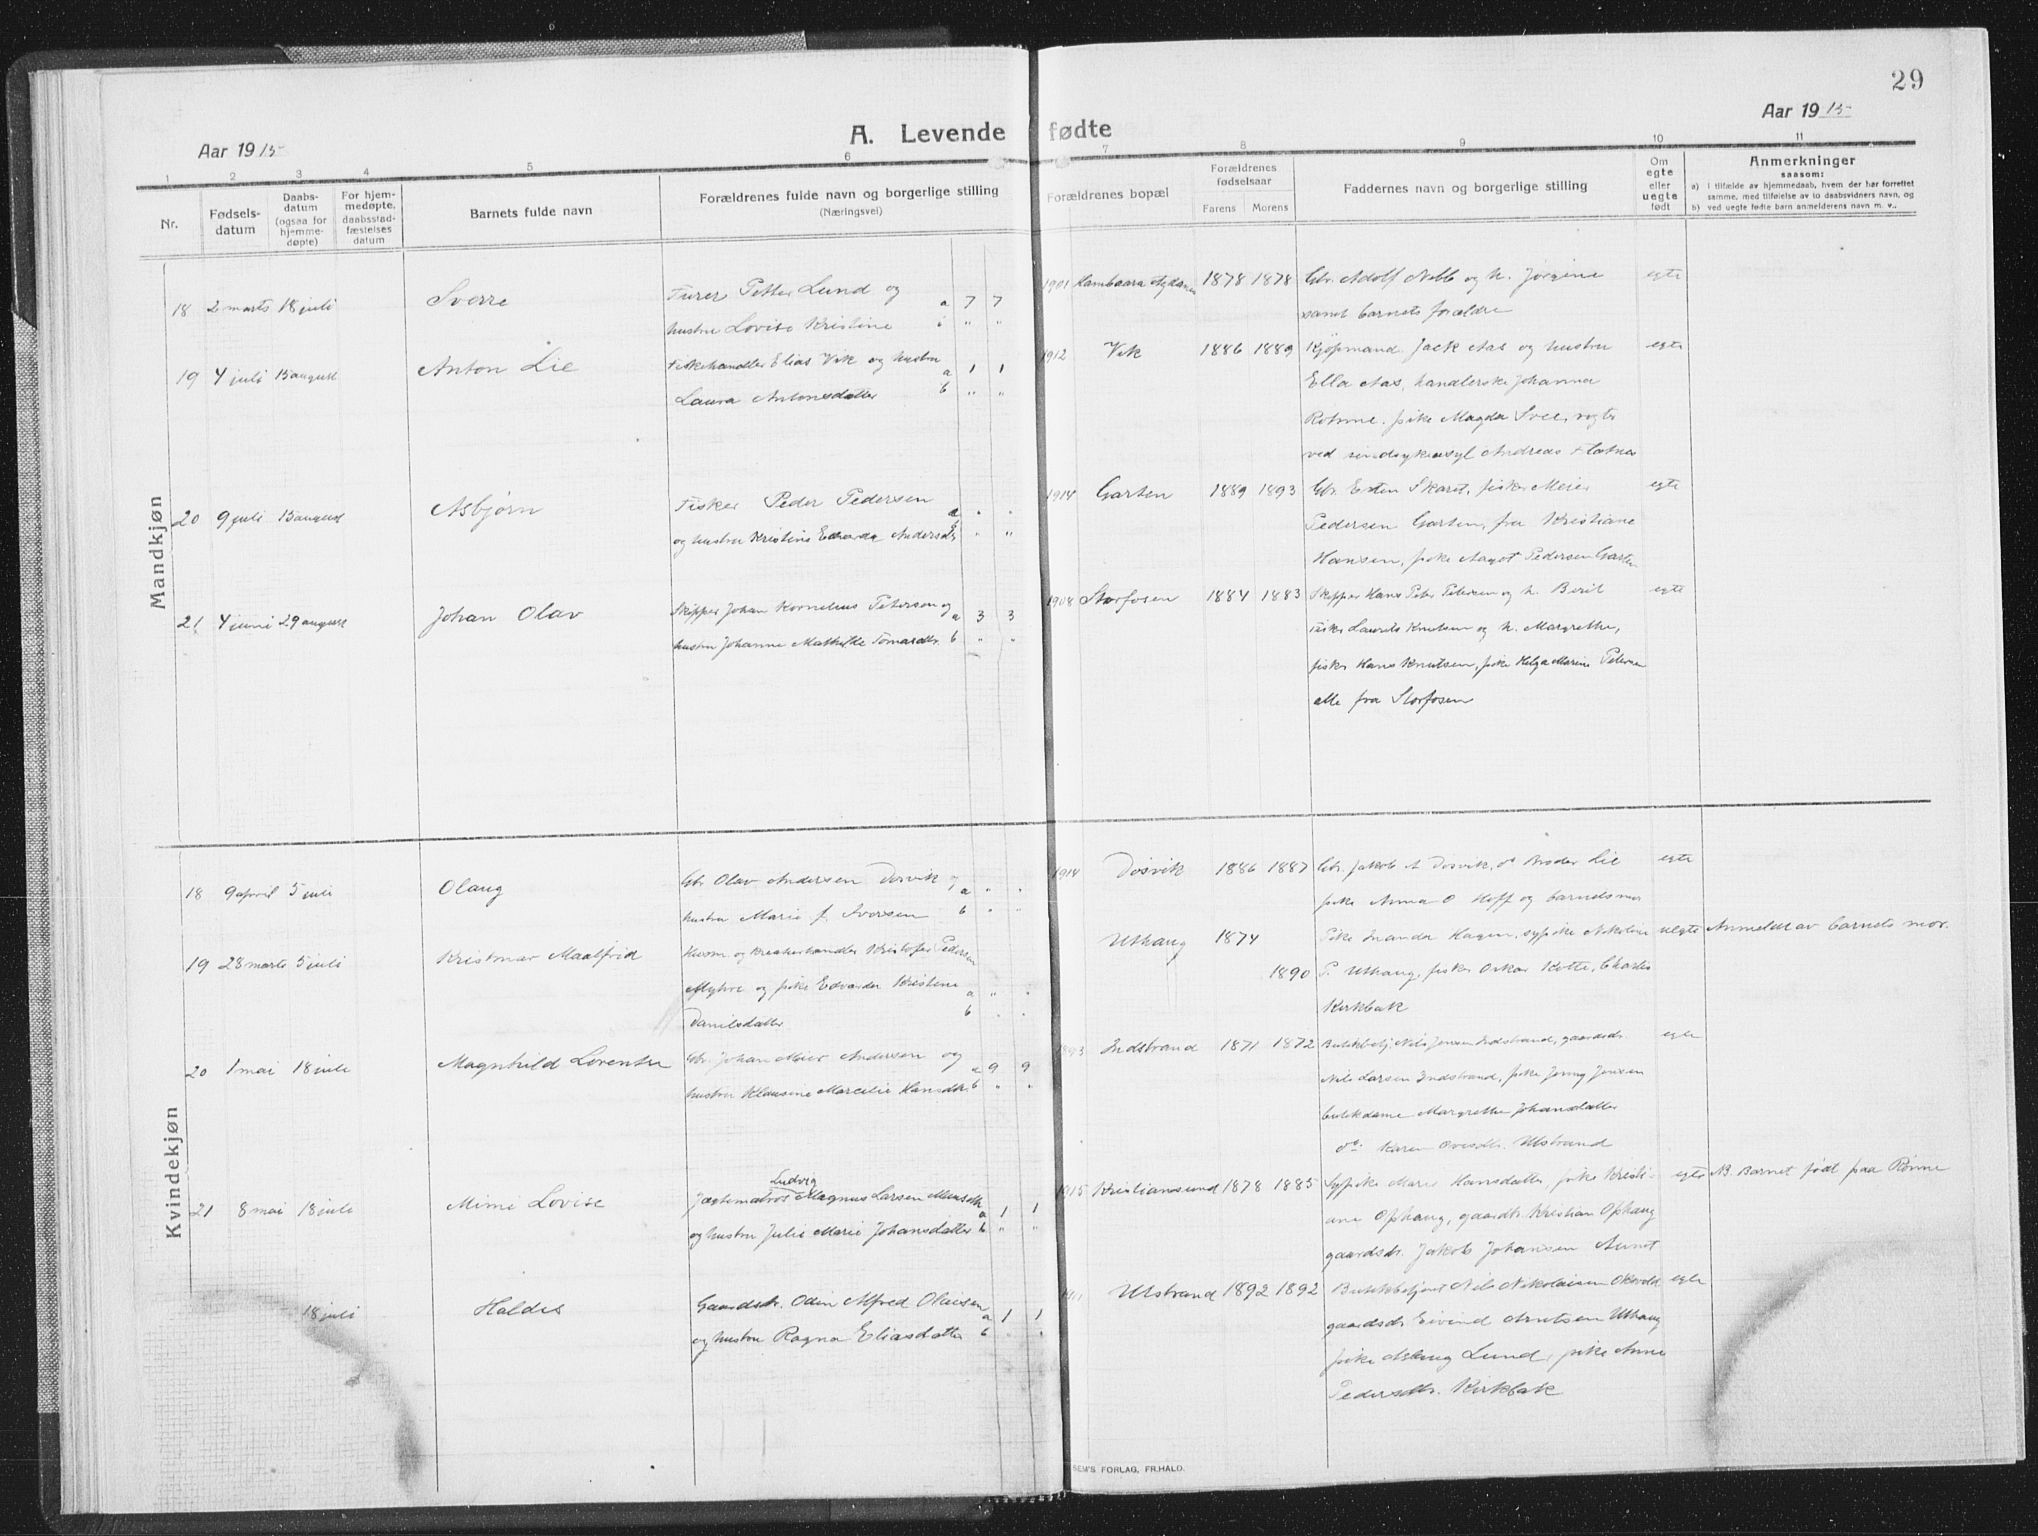 29
Aar 1915
A. Levende fødte
Aar 1915
1 2 3 4 5 6 7 8 9 10 11
Nr.
Fødsels-
datum
Daabs-
datum
(ogsaa for
hjemme-
døpte)
For hjem-
medøpte,
daabsstad-
fæstelses
datum
Barnets fulde navn
Forældrenes fulde navn og borgerlige stilling
(Næringsvei)
Forældrenes bopæl
Forældrenes
fødselsaar
Farens Morens
Faddernes navn og borgerlige stilling
Om
egte
eller
uegte
født
Anmerkninger
saasom:
a) i tilfælde av hjemmedaab, hvem der har forrettet
samme, med tilføielse av to daabsvidners navn, og
b) ved uegte fødte barn anmelderens navn m. v..
Mandkjøn
18 2 marts 18 juli Sverre
Furer Petter Lund og a 7 7
hustru Lovise Kristine
1901 1878 1878
Gbr. Adolf og h. Jørgine
samt barnets forældre
egte
19 4 juli 15 august Anton Lie
Fiskehandler Elias Vik og hustru a 1 1
Laura Antonsdatter b " "
1912 Vik 1886 1889
Kjøpmand Jack Aas og hustru
Ella Aas, handlerske Johanna
pike Magda Svee, vogter
ved sindsykeasyl Andreas Flatnes
egte
20 9 juli 15 august Asbjørn
Fisker Peder Pedersen a " "
og hustru Kristine Edvarda Andersdtr b " "
1914 Garten 1889 1893
Gbr. Esten Skaret, fisker Meier
Pedersen Garten, fru Kristiane
Hansen, pike Aagot Pedersen Garten
egte
21 4 juni 29 august Johan Olav
Skipper Johan Kornelius Peterson og a 3 3
hustru Johanne Mathilde Tomasdtr. b " "
1908 Storfosen 1884 1883
Skipper Hans Peter Petersen og h. Beril
fisker Laurits Knutsen og h. Margrethe,
fisker Hans Knutsen, pike Helga Marine Petersen
alle fra Storfosen
egte
Kvindekjøn
18 9 april 5 juli Olaug
Gbr Olav Andersen Døsvik og a " "
hustru Marie f. Iversen b " "
1914 Døsvik 1886 1887
Gbr. Jakob A Døsvik, do Brøder Lie
pike Anna O Hoff og barnets mor
egte
19 28 marts 5 juli Kristmar Maalfrid
Husm. og kreaturhandler Kristofer Pedersen
Myhre og pike Edvarda Kristine a " "
Danilsdatter b " "
Uthaug 1874
1890
Pike Inanda Hagen, sypike Nikoline
P. Uthaug, fisker Oskar Kotte, Charles
Kirkbak
uegte Anmeldt av barnets mor.
20 1 mai 18 juli Magnhild Lorentse
Gbr. Johan Meier Andersen og a 9 9
hustru Klausine Marcelie Hansdtr. b " "
1893 Indstrand 1871 1872
Butikbetj Nils Jensen Indstrand, gaardsdr.
Nils Larsen Indstrand, pike Jenny Jensen
butikdame Margrethe Johansdatter
do. Karen Ovesdtr. Ulstrand
egte
21 8 mai 18 juli Mimi Lovise
Ludvig
Jægtematros Magnus Larsen a 1 1
og hustru Julie Marie Johansdatter b " "
1915 Kristiansund 1878 1885
Sypike Marie Hansdatter, pike Kristi-
ane Ophaug, gaardb. Kristian Ophaug
gaardsdr. Jakob Johansen Aunet
egte NB. Barnet født paa Rønne
18 juli Haldis
Gaardbr. Odin Alfred Olaisen a 1 1
og hustru Ragna Eliasdatter b " "
1911 Ulstrand 1892 1892
Butikbetjent Nils Nikolaisen
gaardsdr Eivind Arntsen Uthaug
pike Aslaug Lund, pike Anne
Pedersdtr. Kirkbak
egte
SEM'S FORLAG, FR.HALD.